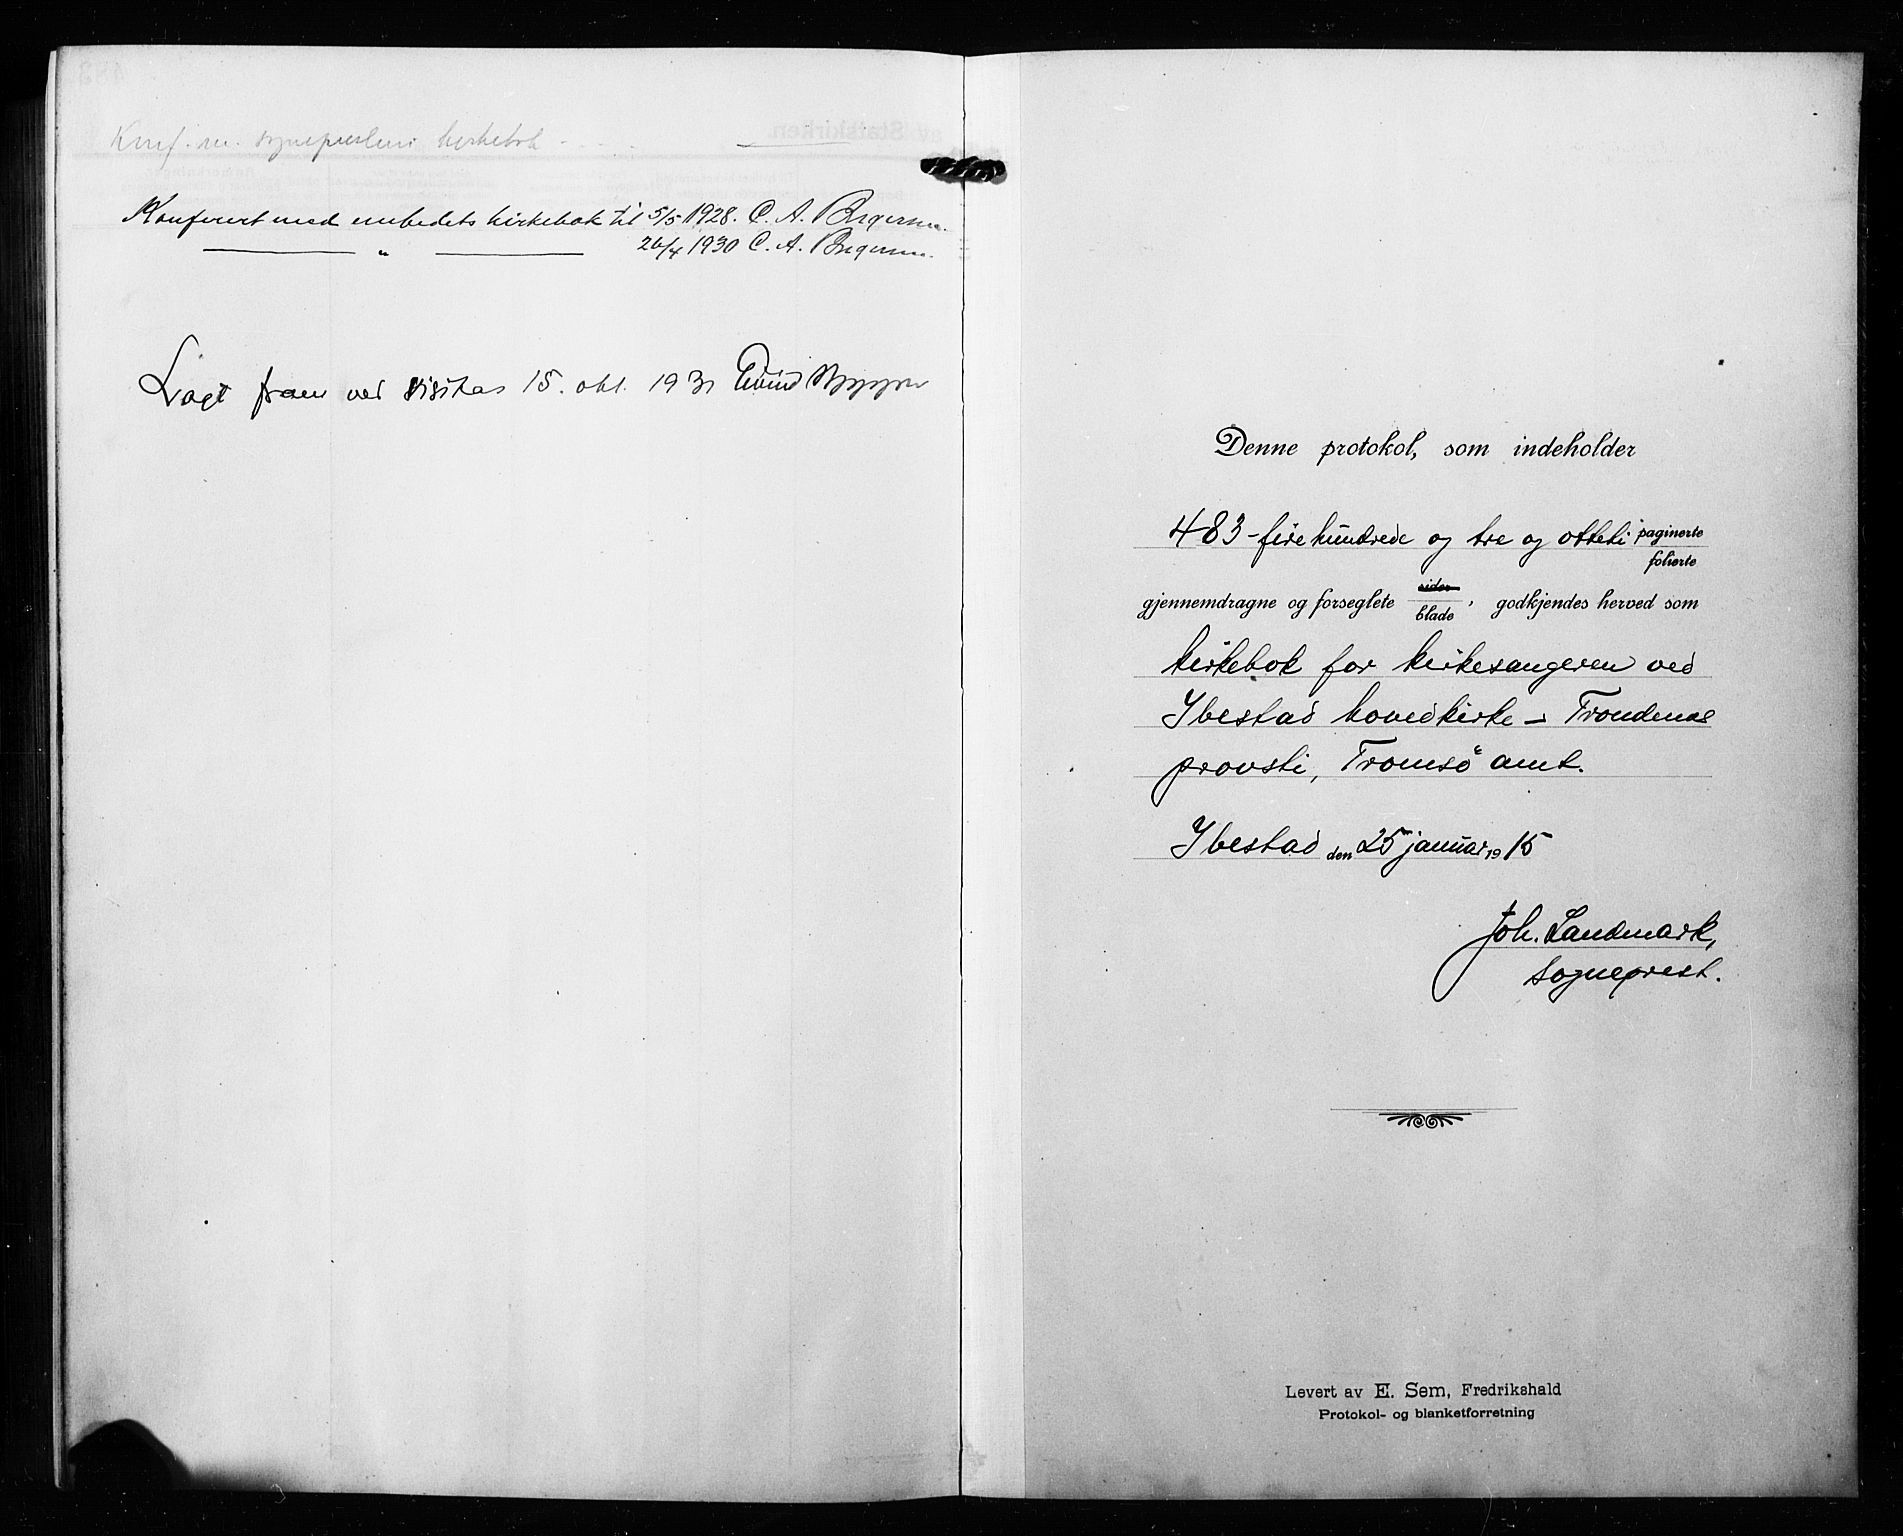 Konf. m. sogneprestens kirkebok
Konferert med embedets kirkebok til 5/5 1928. C. A. Birgersen.
" 26/4 1930 C. A. Birgersen.
Lagt fram ved visitas 15. okt. 1931 Eivind Berggrav
Denne protokol, som indeholder
483 - fire hundrede og tre og otteti paginerte
folierte
gjennemdragne og forseglete sider
blade, godkjendes herved som
kirkebok for kirkesangeren ved
Ibestad hovedkirke - Trondenæs
provsti, Tromsö amt.
Ibestad den 25 januar 1915
Joh. Landmark,
sogneprest.
Levert av E. Sem, Fredrikshald
Protokol- og blanketforretning